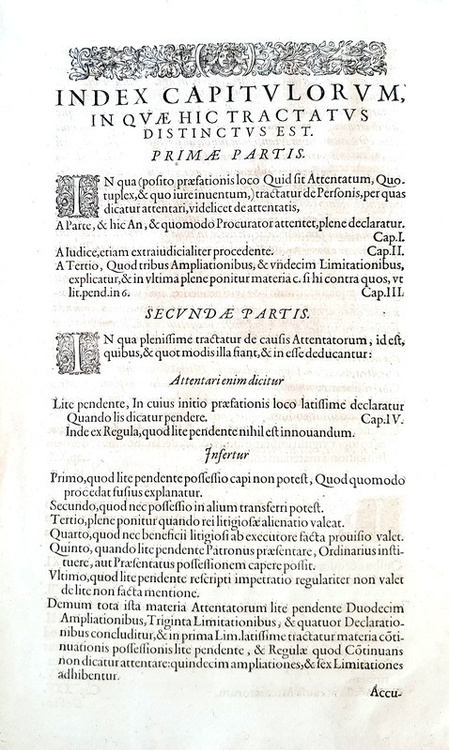 INDEX CAPITVLORVM,
IN QVÆ HIC TRACTATVS
DISTINCTVS EST.
PRIMÆ PARTIS.
IN qua (posito præfationis loco Quid sit Attentatum, Quo-
tuplex, & quo iure inuentum,) tractatur de Personis, per quas
dicatur attentari, videlicet de attentatis,
A Parte, & hic An, & quomodo Procurator attentet, plene declaratur.
Cap.I.
A Iudice, etiam extraiudicialiter procedente. Cap.II.
A Tertio, Quod tribus Ampliationibus, & vndecim Limitationibus,
explicatur, & in vltima plene ponitur materia c. si hi contra quos, vt
lit.pend.in 6. Cap.III.
SECVNDÆ PARTIS.
IN qua plenissime tractatur de causis Attentatorum, id est,
quibus, & quot modis illa fiant, & in esse deducantur:
Attentari enim dicitur
Lite pendente, In cuius initio præfationis loco latissime declaratur
Quando lis dicatur pendere. Cap.IV.
Inde ex Regula, quod lite pendente nihil est innouandum.
Infertur
Primo, quod lite pendente possessio capi non potest, Quod quomodo
procedat fusius explanatur.
Secundo, quod nec possessio in alium transferri potest.
Tertio, plene ponitur quando rei litigiosæ alienatio valeat.
Quarto, quod nec beneficii litigiosi ab executore facta prouisio valet.
Quinto, quando lite pendente Patronus præsentare, Ordinarius insti-
tuere, aut Præsentatus possessionem capere possit.
Vltimo, quod lite pendente rescripti impetratio regulariter non valet
de lite non facta mentione.
Demum tota ista materia Attentatorum lite pendente Duodecim
Ampliationibus, Triginta Limitationibus, & quatuor Declaratio-
nibus concluditur, & in prima Lim. latissime tractatur materia cōti-
nuationis possessionis lite pendente, & Regulæ quod Cōtinuans
non dicatur attentare: quindecim ampliationes, & sex Limitationes
adhibentur.
Accu-